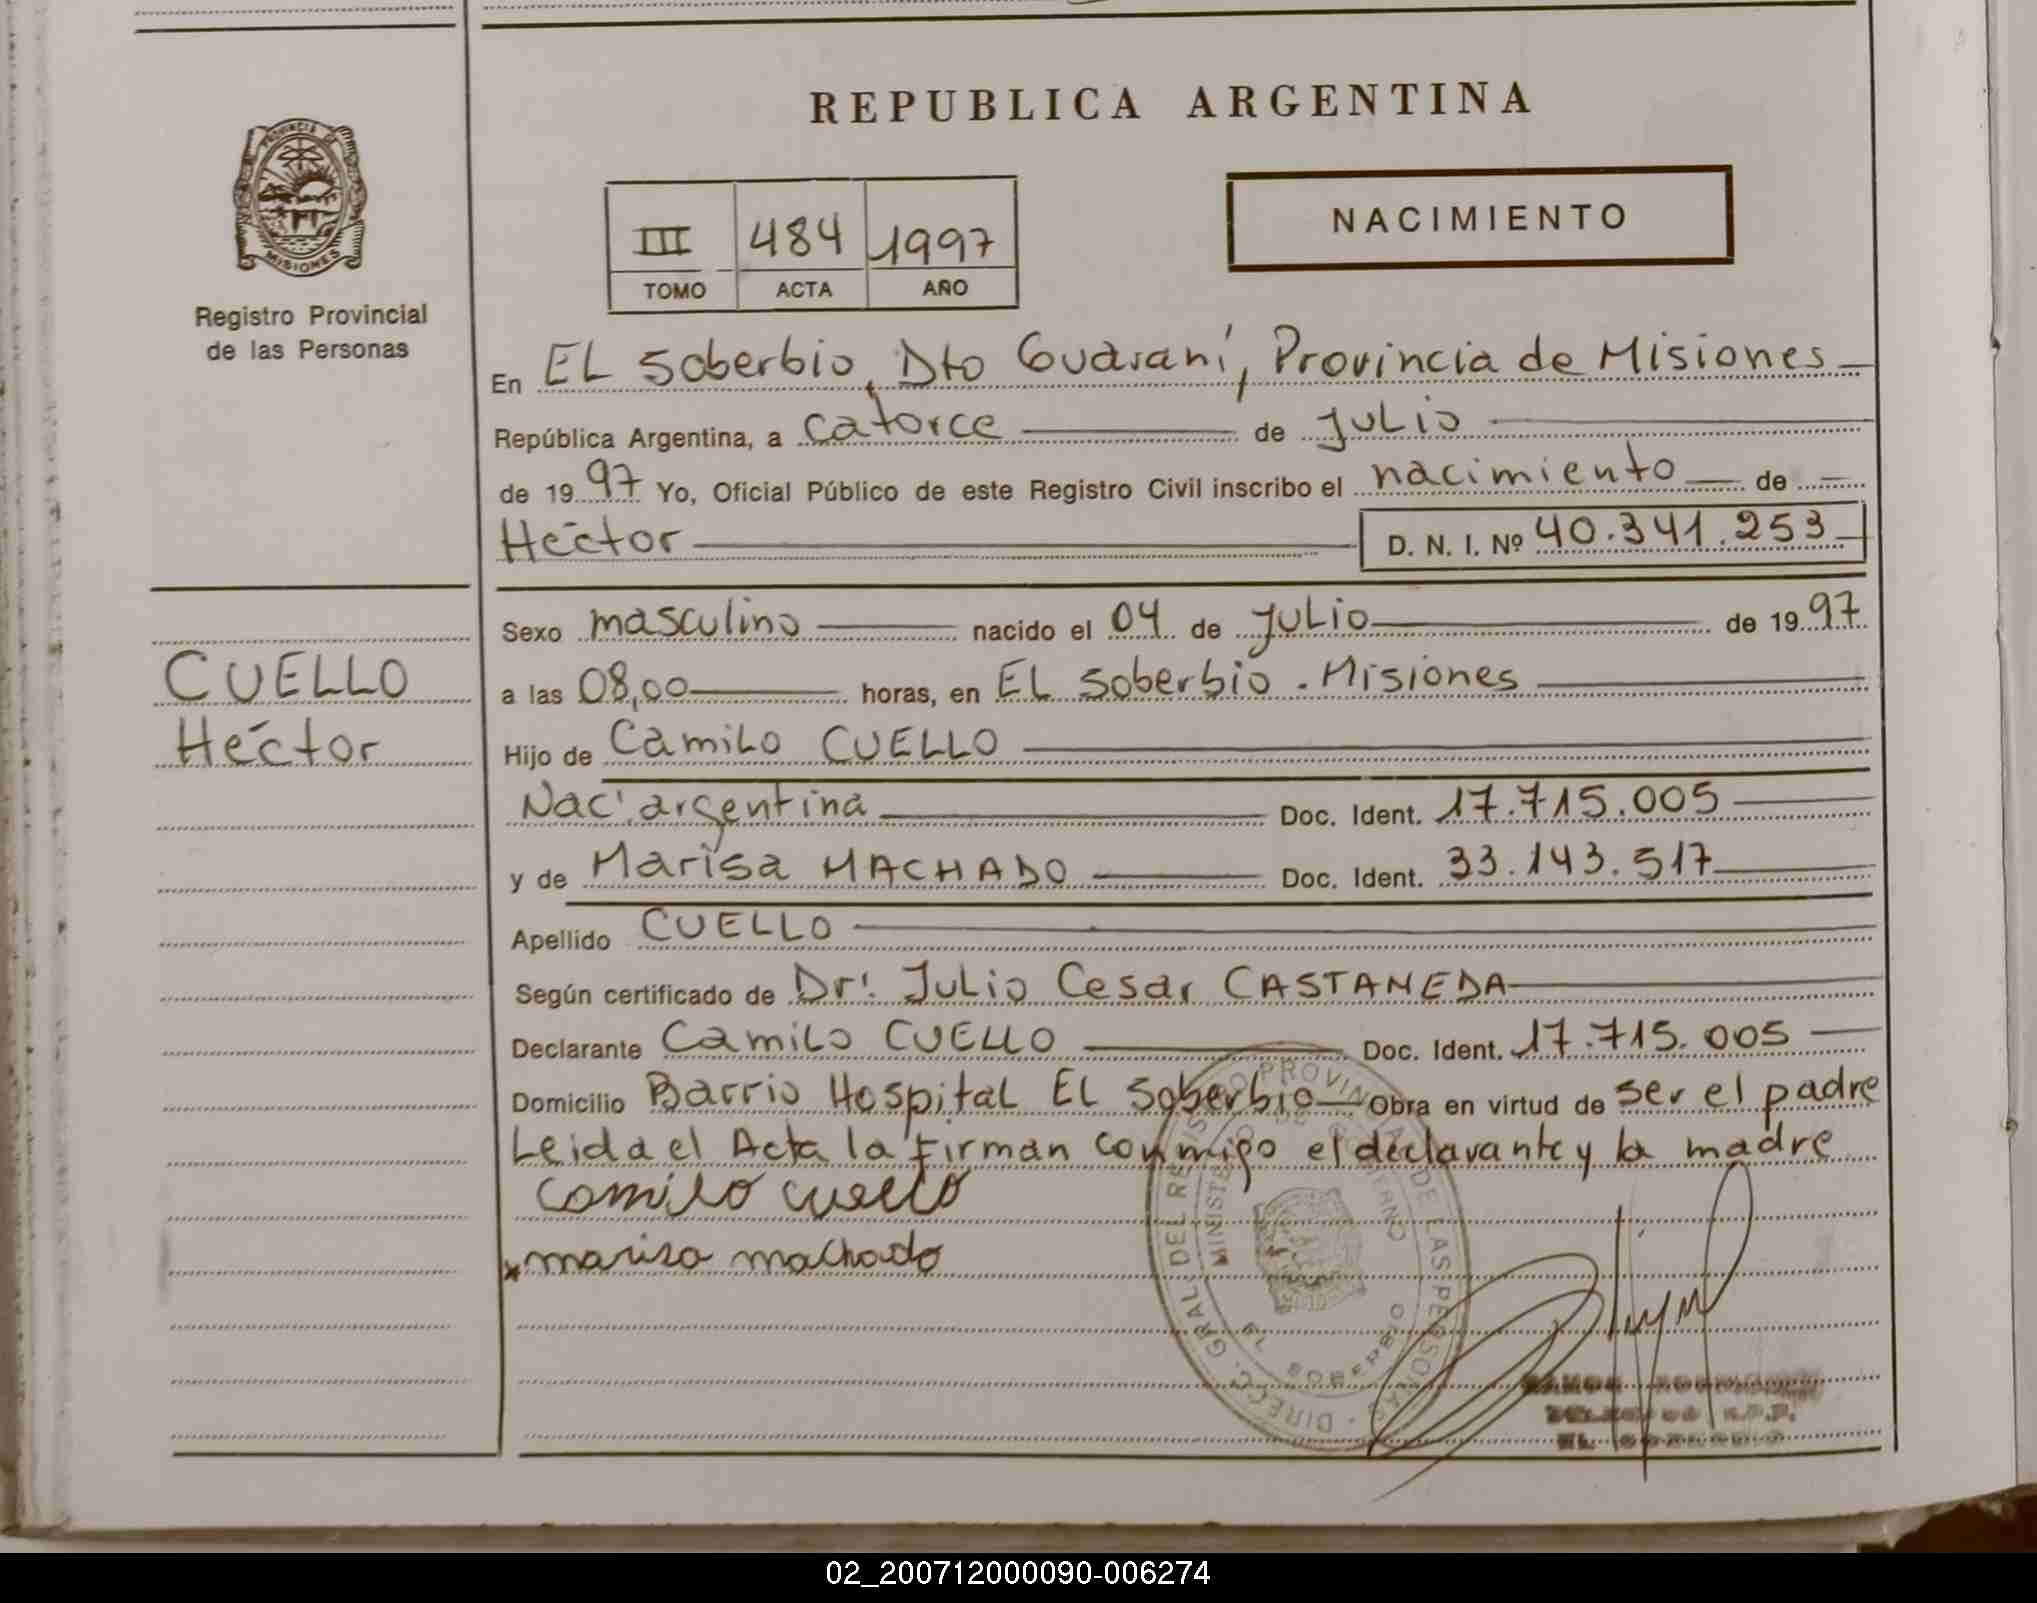 REPUBLICA ARGENTINA
PROVINCIA DE MISIONES
Registro Provincial
de las Personas
III 484 1997
TOMO ACTA AÑO
NACIMIENTO
En EL Soberbio, Dto Guaraní, Provincia de Misiones
República Argentina, a catorce de julio
de 1997 Yo, Oficial Público de este Registro Civil inscribo el nacimiento de
Héctor D. N. I. Nº 40.341.253
CUELLO
Héctor
Sexo masculino nacido el 04 de julio de 1997
a las 08,00 horas, en EL Soberbio. Misiones
Hijo de Camilo CUELLO
Nac. argentina Doc. Ident. 17.715.005
y de Marisa MACHADO Doc. Ident. 33.143.517
Apellido CUELLO
Según certificado de Dr. Julio Cesar CASTANEDA
Declarante Camilo CUELLO Doc. Ident. 17.715.005
Domicilio Barrio Hospital EL Soberbio Obra en virtud de ser el padre
Leida el Acta la firman conmigo el declarante y la madre
Camilo Cuello
x marisa machado
DIRECC. GRAL. DEL REGISTRO PROVINCIAL DE LAS PERSONAS
MINISTERIO DE GOBIERNO
SOBERBIO
02_200712000090-006274